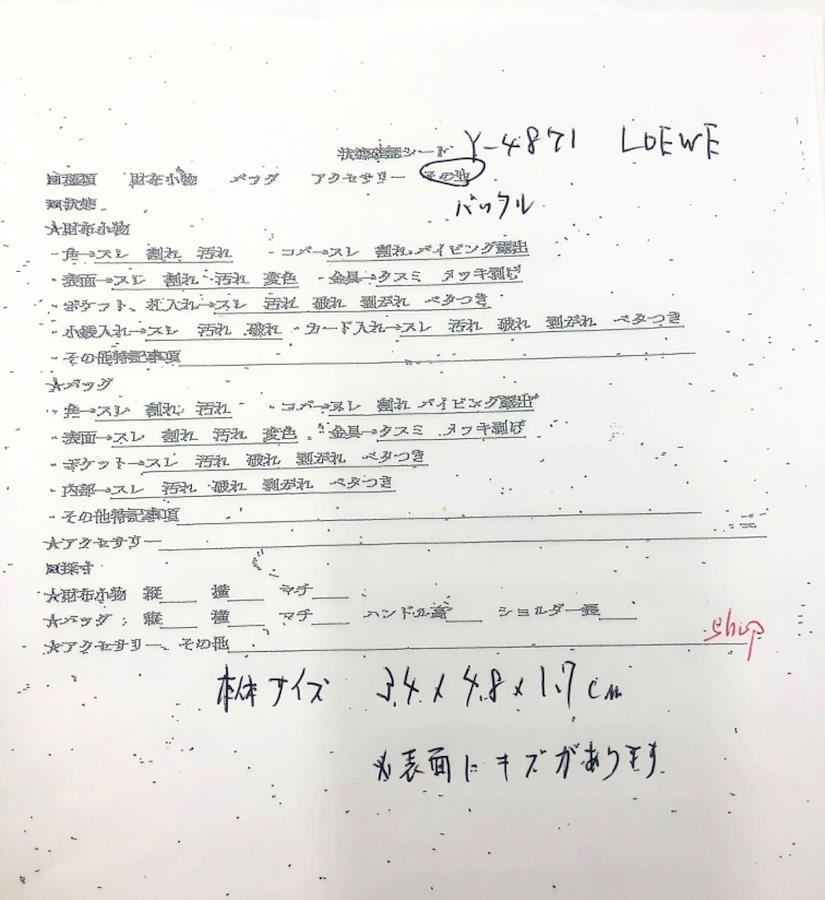 状態確認シート Y-4871 LOEWE
■種類 財布小物 バッグ アクセサリー その他
バックル
■状態
★財布小物
・角→スレ 割れ 汚れ ・コバ→スレ 割れ パイピング露出
・表面→スレ 割れ 汚れ 変色 ・金具→クスミ メッキ剥げ
・ポケット、札入れ→スレ 汚れ 破れ 剥がれ ベタつき
・小銭入れ→スレ 汚れ 破れ ・カード入れ→スレ 汚れ 破れ 剥がれ ベタつき
・その他特記事項
★バッグ
・角→スレ 割れ 汚れ ・コバ→スレ 割れ パイピング露出
・表面→スレ 割れ 汚れ 変色 ・金具→クスミ メッキ剥げ
・ポケット→スレ 汚れ 破れ 剥がれ ベタつき
・内部→スレ 汚れ 破れ 剥がれ ベタつき
・その他特記事項
★アクセサリー
■採寸
★財布小物 縦 横 マチ
★バッグ: 縦 横 マチ ハンドル高 ショルダー長
★アクセサリー、その他
ship
本体サイズ 3.4 x 4.8 x 1.7 cm
※表面にキズがあります